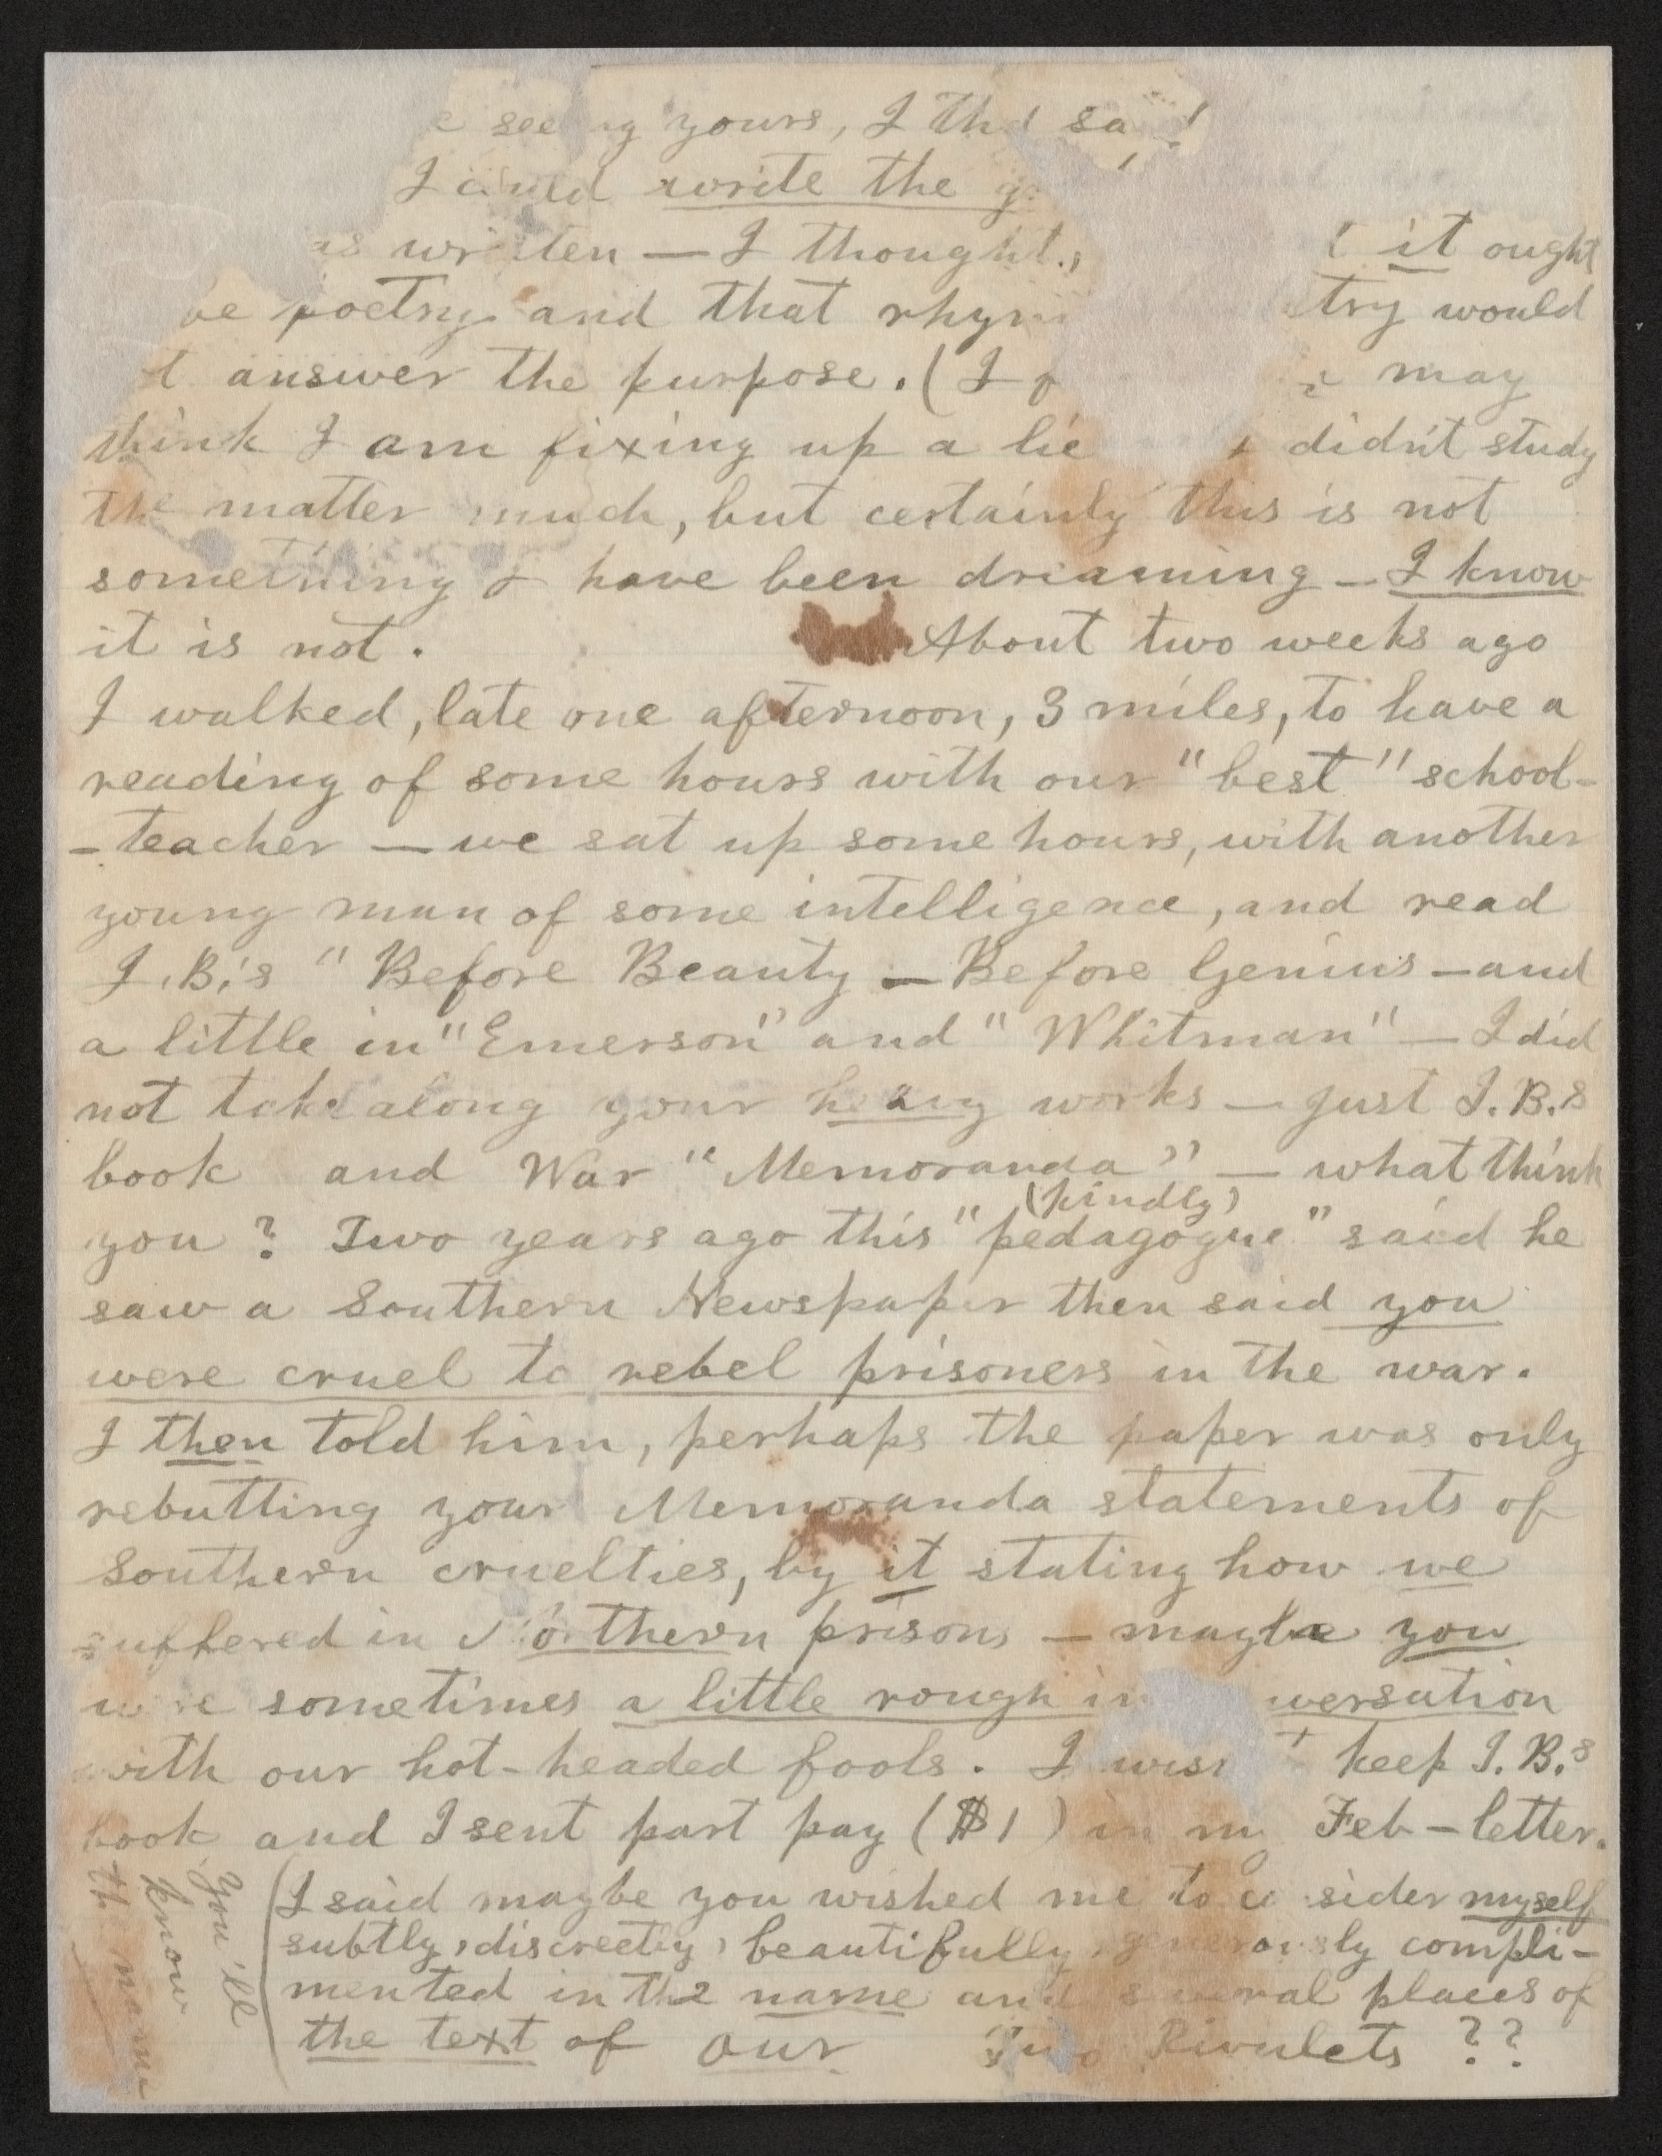 seeing yours, I thd sa
I could write the
as written — I thought, it ought
be poetry and that rhym try would
answer the purpose. (I may
think I am fixing up a lie didn't study
the matter much, but certainly this is not
something I have been driaming — I know
it is not. About two weeks ago
I walked, late one afternoon, 3 miles, to have a
reading of some hours with our "best" school-
- teacher — we sat up some hours, with another
young man of some intelligence, and read
J. B.'s "Before Beauty — Before Genius — and
a little in "Emerson" and "Whitman" — I did
not take along your heavy works — just J. B.s
book and War "Memoranda" — what think
(kindly)
you? Two years ago this "pedagogue" said he
saw a Southern Newspaper then said you
were cruel to rebel prisoners in the war.
I then told him, perhaps the paper was only
rebutting your Memoranda statements of
Southern cruelties, by it stating how we
suffered in Northern prisons — maybe you
were sometimes a little rough in versation
with our hot-headed fools. I wish keep J. B.s
book and I sent part pay ($1) in my Feb — letter.
(I said maybe you wished me to consider myself
subtly, discreetly, beautifully, generously compli-
mented in the name and several places of
the text of our Two Rivulets ??
You'll
know
th name